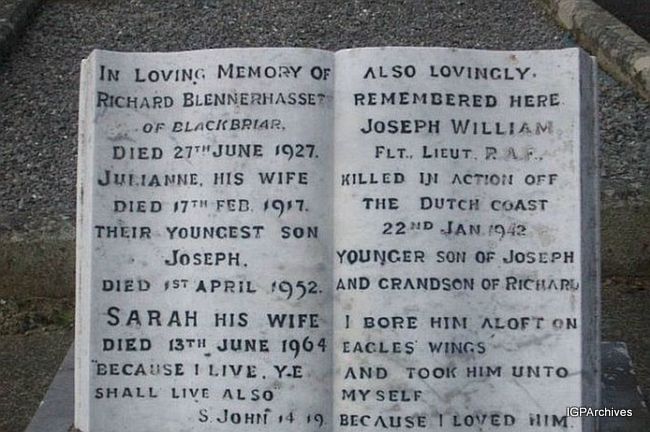 IN LOVING MEMORY OF
RICHARD BLENNERHASSET
OF BLACKBRIAR.
DIED 27TH JUNE 1927.
JULIANNE, HIS WIFE
DIED 17TH FEB. 1917.
THEIR YOUNGEST SON
JOSEPH.
DIED 1ST APRIL 1952.
SARAH HIS WIFE
DIED 13TH JUNE 1964
"BECAUSE I LIVE, YE
SHALL LIVE ALSO"
S. JOHN 14 19.
ALSO LOVINGLY.
REMEMBERED HERE
JOSEPH WILLIAM
FLT., LIEUT., R.A.F.,
KILLED IN ACTION OFF
THE DUTCH COAST
22ND JAN. 1942
YOUNGER SON OF JOSEPH
AND GRANDSON OF RICHARD
I BORE HIM ALOFT ON
EAGLES' WINGS
AND TOOK HIM UNTO
MYSELF
BECAUSE I LOVED HIM.
IGPArchives